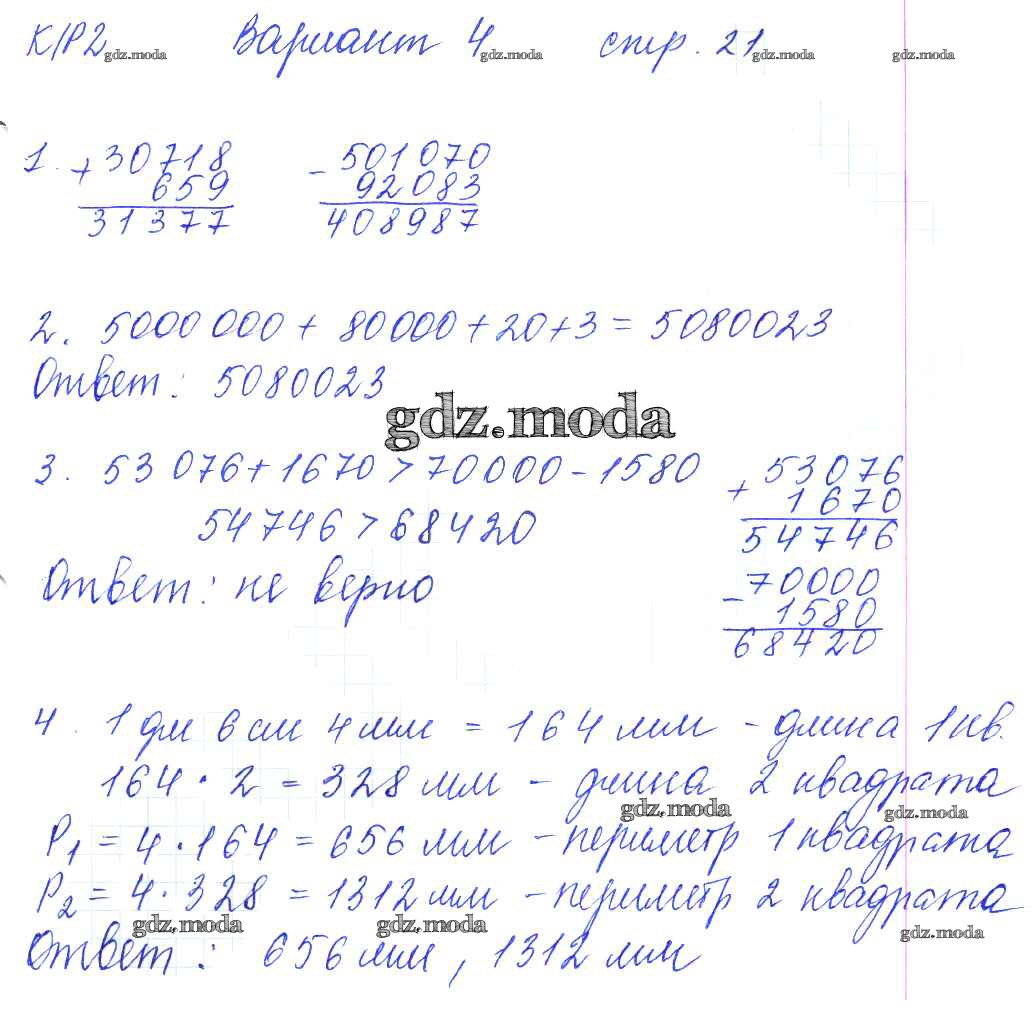 К/Р2 Вариант 4 стр. 21
gdz.moda gdz.moda gdz.moda gdz.moda
1. + 30718 - 501070
659 92083
31377 408987
2. 5000 000 + 80000 + 20 + 3 = 5080023
Ответ: 5080023
gdz.moda
3. 53 076 + 1670 > 70000 - 1580
54746 > 68420
Ответ: не верно
+ 53076
1670
54746
- 70000
1580
68420
4. 1 дм 6 см 4 мм = 164 мм - длина 1 кв.
164 · 2 = 328 мм - длина 2 квадрата
gdz.moda gdz.moda
P1 = 4 · 164 = 656 мм - периметр 1 квадрата
P2 = 4 · 328 = 1312 мм - периметр 2 квадрата
gdz.moda gdz.moda gdz.moda
Ответ: 656 мм, 1312 мм